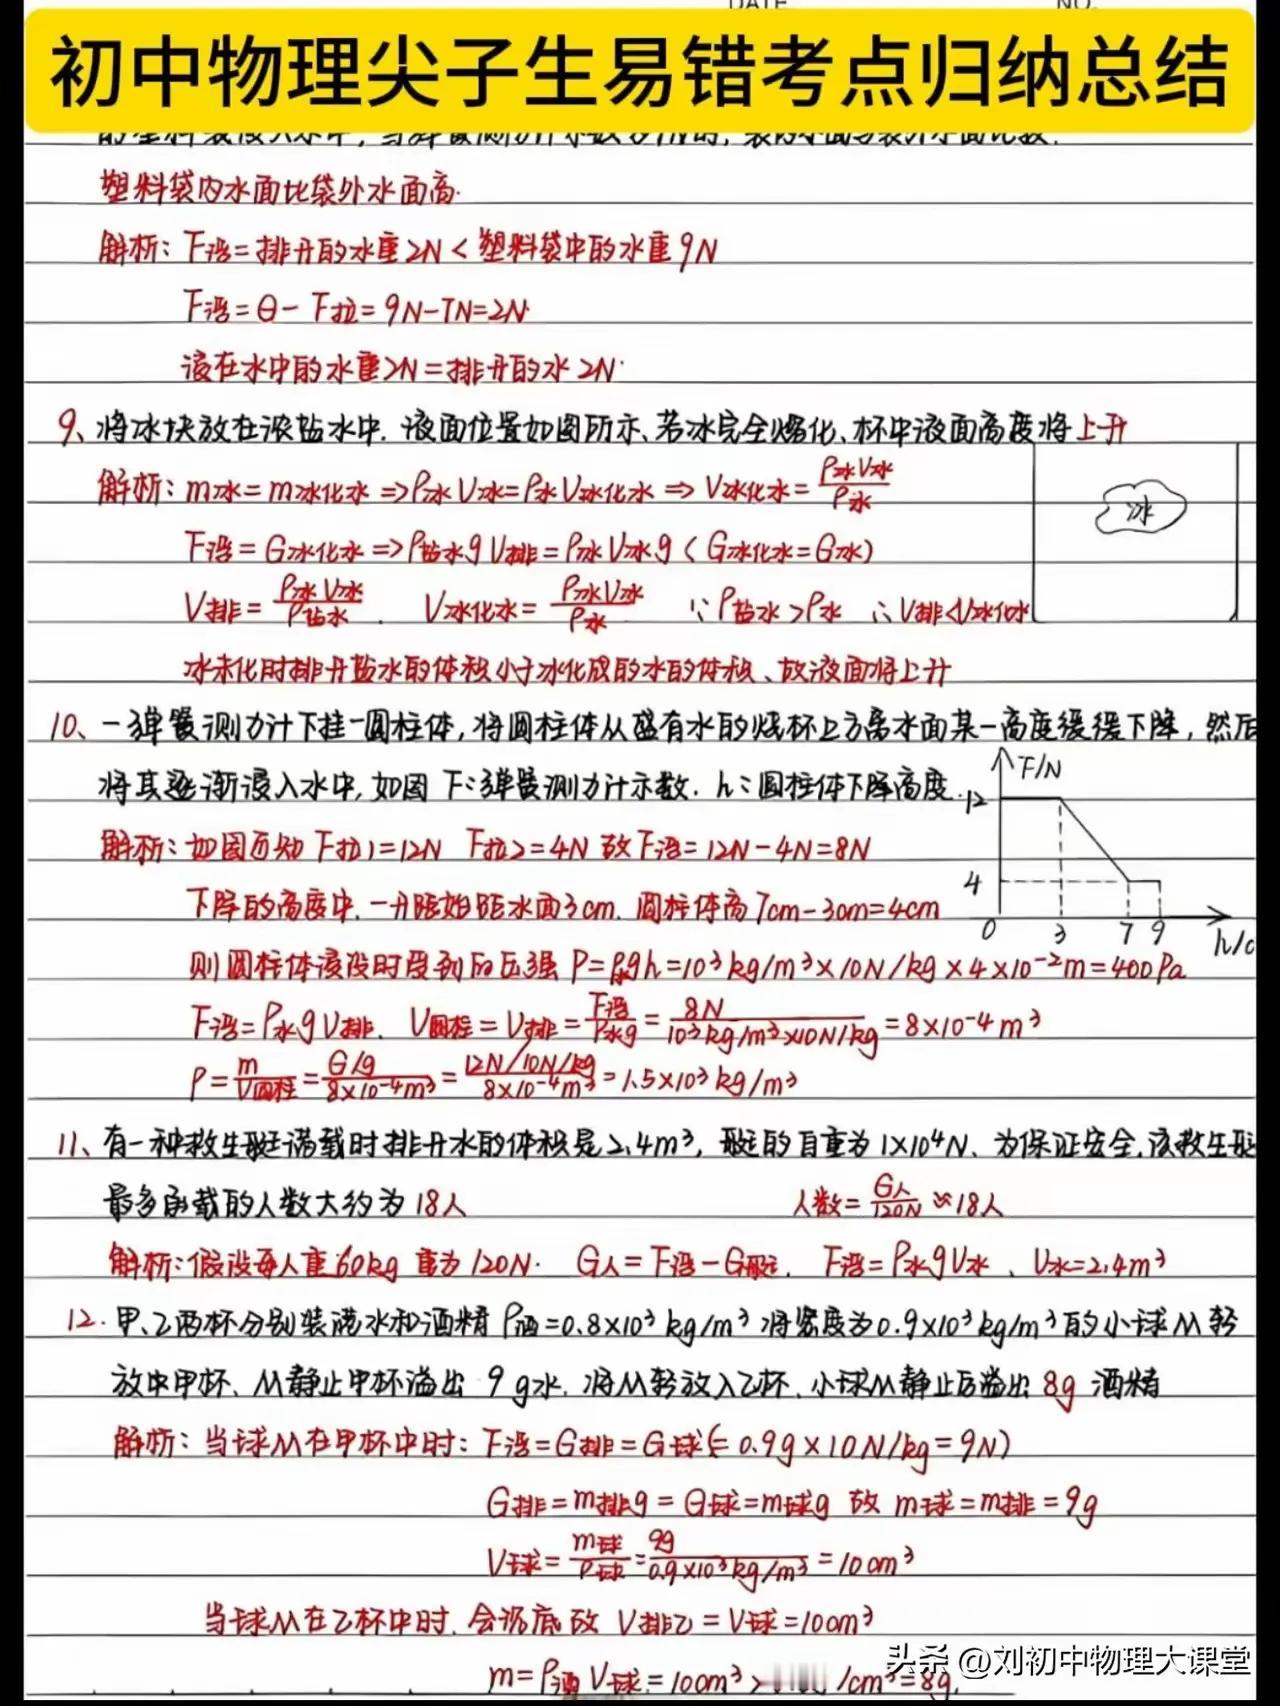 DATE NO.
初中物理尖子生易错考点归纳总结
塑料袋内水面比袋外水面高.
解析: F浮=排开的水重2N < 塑料袋中的水重9N
F浮=G-F拉=9N-7N=2N.
浸在水中的水重2N=排开的水2N.
9、将冰块放在浓盐水中.液面位置如图所示、若冰完全熔化、杯中液面高度将上升
解析: m冰=m冰化水 => ρ冰V冰=ρ水V冰化水 => V冰化水=ρ冰V冰/ρ水
冰
F浮=G冰化水 => ρ盐水gV排=ρ冰V冰g (G冰化水=G冰)
V排=ρ冰V冰/ρ盐水. V冰化水=ρ冰V冰/ρ水 ∵ρ盐水>ρ水 ∴V排<V冰化水
冰未化时排开盐水的体积小于冰化成的水的体积、故液面将上升
10、一弹簧测力计下挂一圆柱体,将圆柱体从盛有水的烧杯上方离水面某一高度缓缓下降,然后
将其逐渐浸入水中,如图 F:弹簧测力计示数. h:圆柱体下降高度.
F/N
12
4
0 3 7 9
解析:如图可知 F拉1=12N F拉2=4N 故F浮=12N-4N=8N
下降的高度中.一开始始距水面3cm.圆柱体高7cm-3cm=4cm
则圆柱体浸没时受到的压强 P=ρ水gh=10³kg/m³×10N/kg×4×10⁻²m=400Pa
F浮=ρ水gV排. V圆柱=V排=F浮/ρ水g=8N/10³kg/m³×10N/kg=8×10⁻⁴m³
ρ=m/V圆柱=G/g/8×10⁻⁴m³=12N/10N/kg/8×10⁻⁴m³=1.5×10³kg/m³
11、有一种救生艇满载时排开水的体积是2.4m³,艇的自重为1×10⁴N、为保证安全.该救生艇
最多承载的人数大约为18人 人数=G人/120N≈18人
解析:假设每人重60kg 重为120N. G人=F浮-G艇. F浮=ρ水gV水、V水=2.4m³
12.甲、乙两杯分别装满水和酒精 ρ酒=0.8×10³kg/m³ 将密度为0.9×10³kg/m³的小球M轻
放中甲杯、M静止甲杯溢出 9g水.将M轻放入乙杯、小球M静止后溢出 8g 酒精
解析:当球M在甲杯中时: F浮=G排=G球(=0.9g×10N/kg=9N)
G排=m排g=G球=m球g 故 m球=m排=9g
V球=m球/ρ球=9g/0.9×10³kg/m³=10cm³
当球M在乙杯中时.会沉底故 V排乙=V球=10cm³
m=ρ酒V球=10cm³ /cm³=8g.
头条 @刘初中物理大课堂